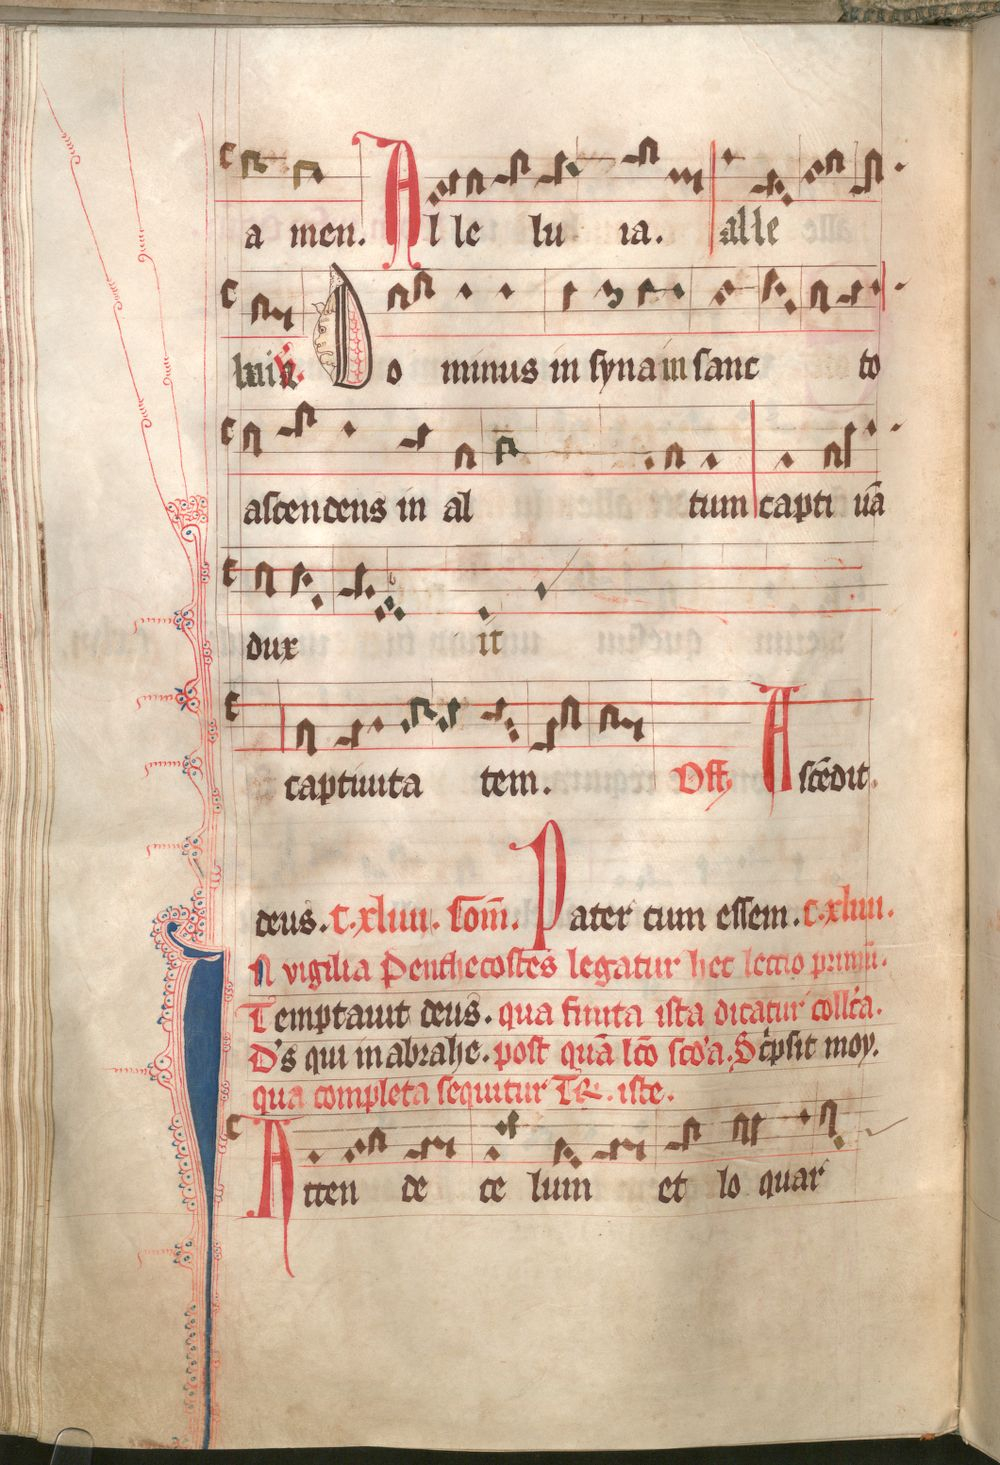 a men. Al le lu ia. alle
luia V. Do minus in syna in sanc to
ascendens in al tum capti uā
dux it
captiuita tem. Off Ascēdit
deus. C.xliiii. Com̄. Pater cum essem. C.xliii.
In vigilia Penthecostes legatur hec lectio primū.
Temptauit deus. qua finita ista dicatur collc̄a.
D's qui in abrahe. post quā lc̄o sc'oa. Scͥpsit moy.
qua completa sequitur TR. iste.
Atten de ce lum et lo quar